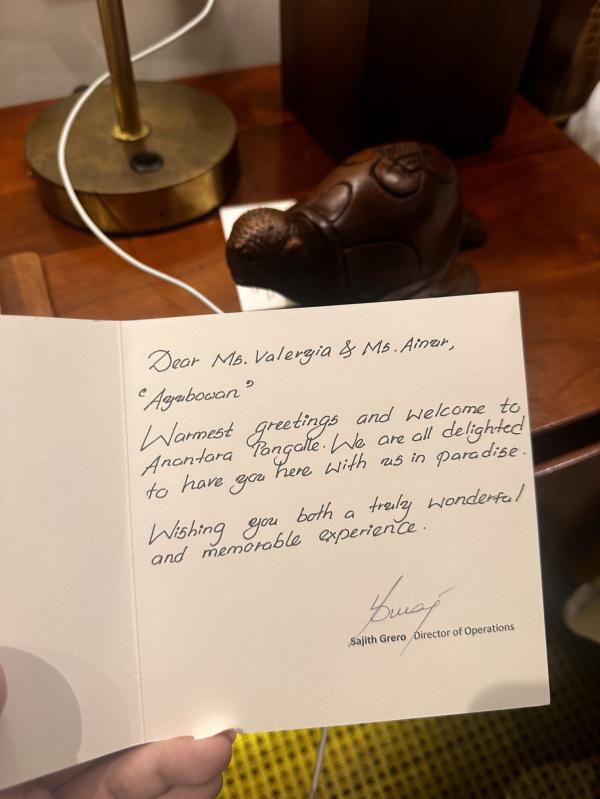 Dear Ms. Valerzia & Ms. Ainur,
"Ayubowan"
Warmest greetings and welcome to
Anantara Tangalle. We are all delighted
to have you here with us in paradise.
Wishing you both a truly wonderful
and memorable experience.
Sajith Grero Director of Operations